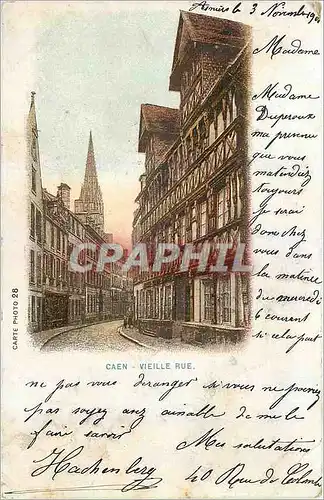 le 3 Novembre 190
Madame
Madame
Duperoux
ma prévenu
que vous
m'attendiez
toujours
je serai
donc chez
vous dans
la matinée
du mercredi
6 courant
si cela part
CRAPHIC
CARTE PHOTO 28
CAEN - VIEILLE RUE.
ne pas vous déranger si vous ne pouviez
pas soyez assez aimable de me le
faire savoir
Mes salutations
Hachenberg
40 Rue de Colombe